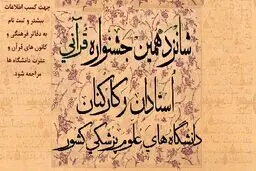 جهت کسب اطلاعات
بیشتر و ثبت نام
به دفاتر فرهنگی و
کانون های قرآن و
عترت دانشگاه ها
مراجعه شود.
شانزدهمین جشنواره قرآنی
استادان و کارکنان
دانشگاه های علوم پزشکی کشور